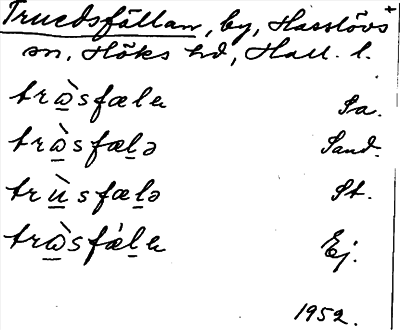 Truedsfällan, by, Hasslövs +
sn, Höks hd, Hall. l.
trὼ̲sfælɐ Sa.
trὼ̲sfæl̲ə Sand.
trù̲sfæl̲ə St.
trὼ̲sfæ̀l̲ɐ Ej.
1952.